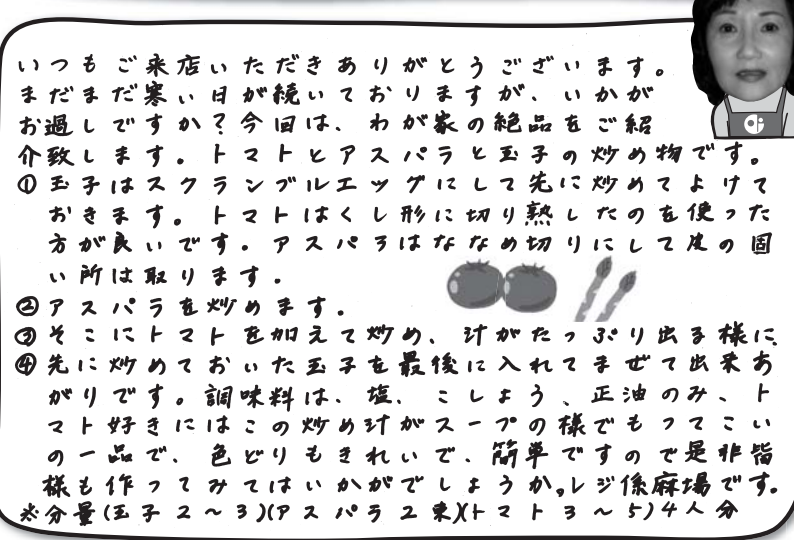 いつもご来店いただきありがとうございます。
まだまだ寒い日が続いておりますが、いかが
お過しですか?今回は、わが家の絶品をご紹
介致します。トマトとアスパラと玉子の炒め物です。
①玉子はスクランブルエッグにして先に炒めてよけて
おきます。トマトはくし形に切り熟したのを使った
方が良いです。アスパラはななめ切りにして皮の固
い所は取ります。
②アスパラを炒めます。
③そこにトマトを加えて炒め、汁がたっぷり出る様に、
④先に炒めておいた玉子を最後に入れてまぜて出来あ
がりです。調味料は、塩、こしょう、正油のみ、ト
マト好きにはこの炒め汁がスープの様でもってこい
の一品で、色どりもきれいで、簡単ですので是非皆
様も作ってみてはいかがでしょうか。レジ係麻場です。
※分量(玉子2〜3)(アスパラ2束)(トマト3〜5)4人分